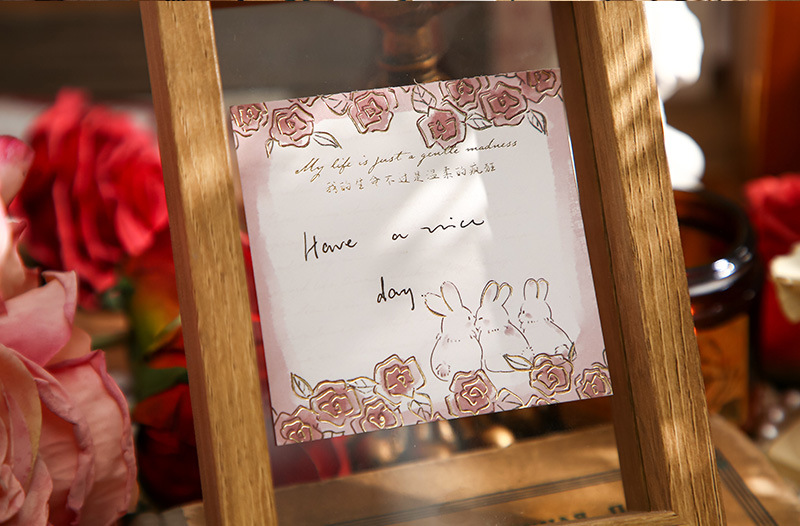 My life is just a gentle madness
我的生命不过是温柔的疯狂
Have a nice
day